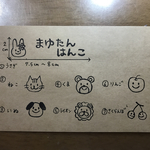 まゆたん
はんこ
① うさぎ 7.5cm〜8cm
② ねこ
④ くま
⑥ りんご
③ いぬ
⑤ らいおん
⑦ さくらんぼ